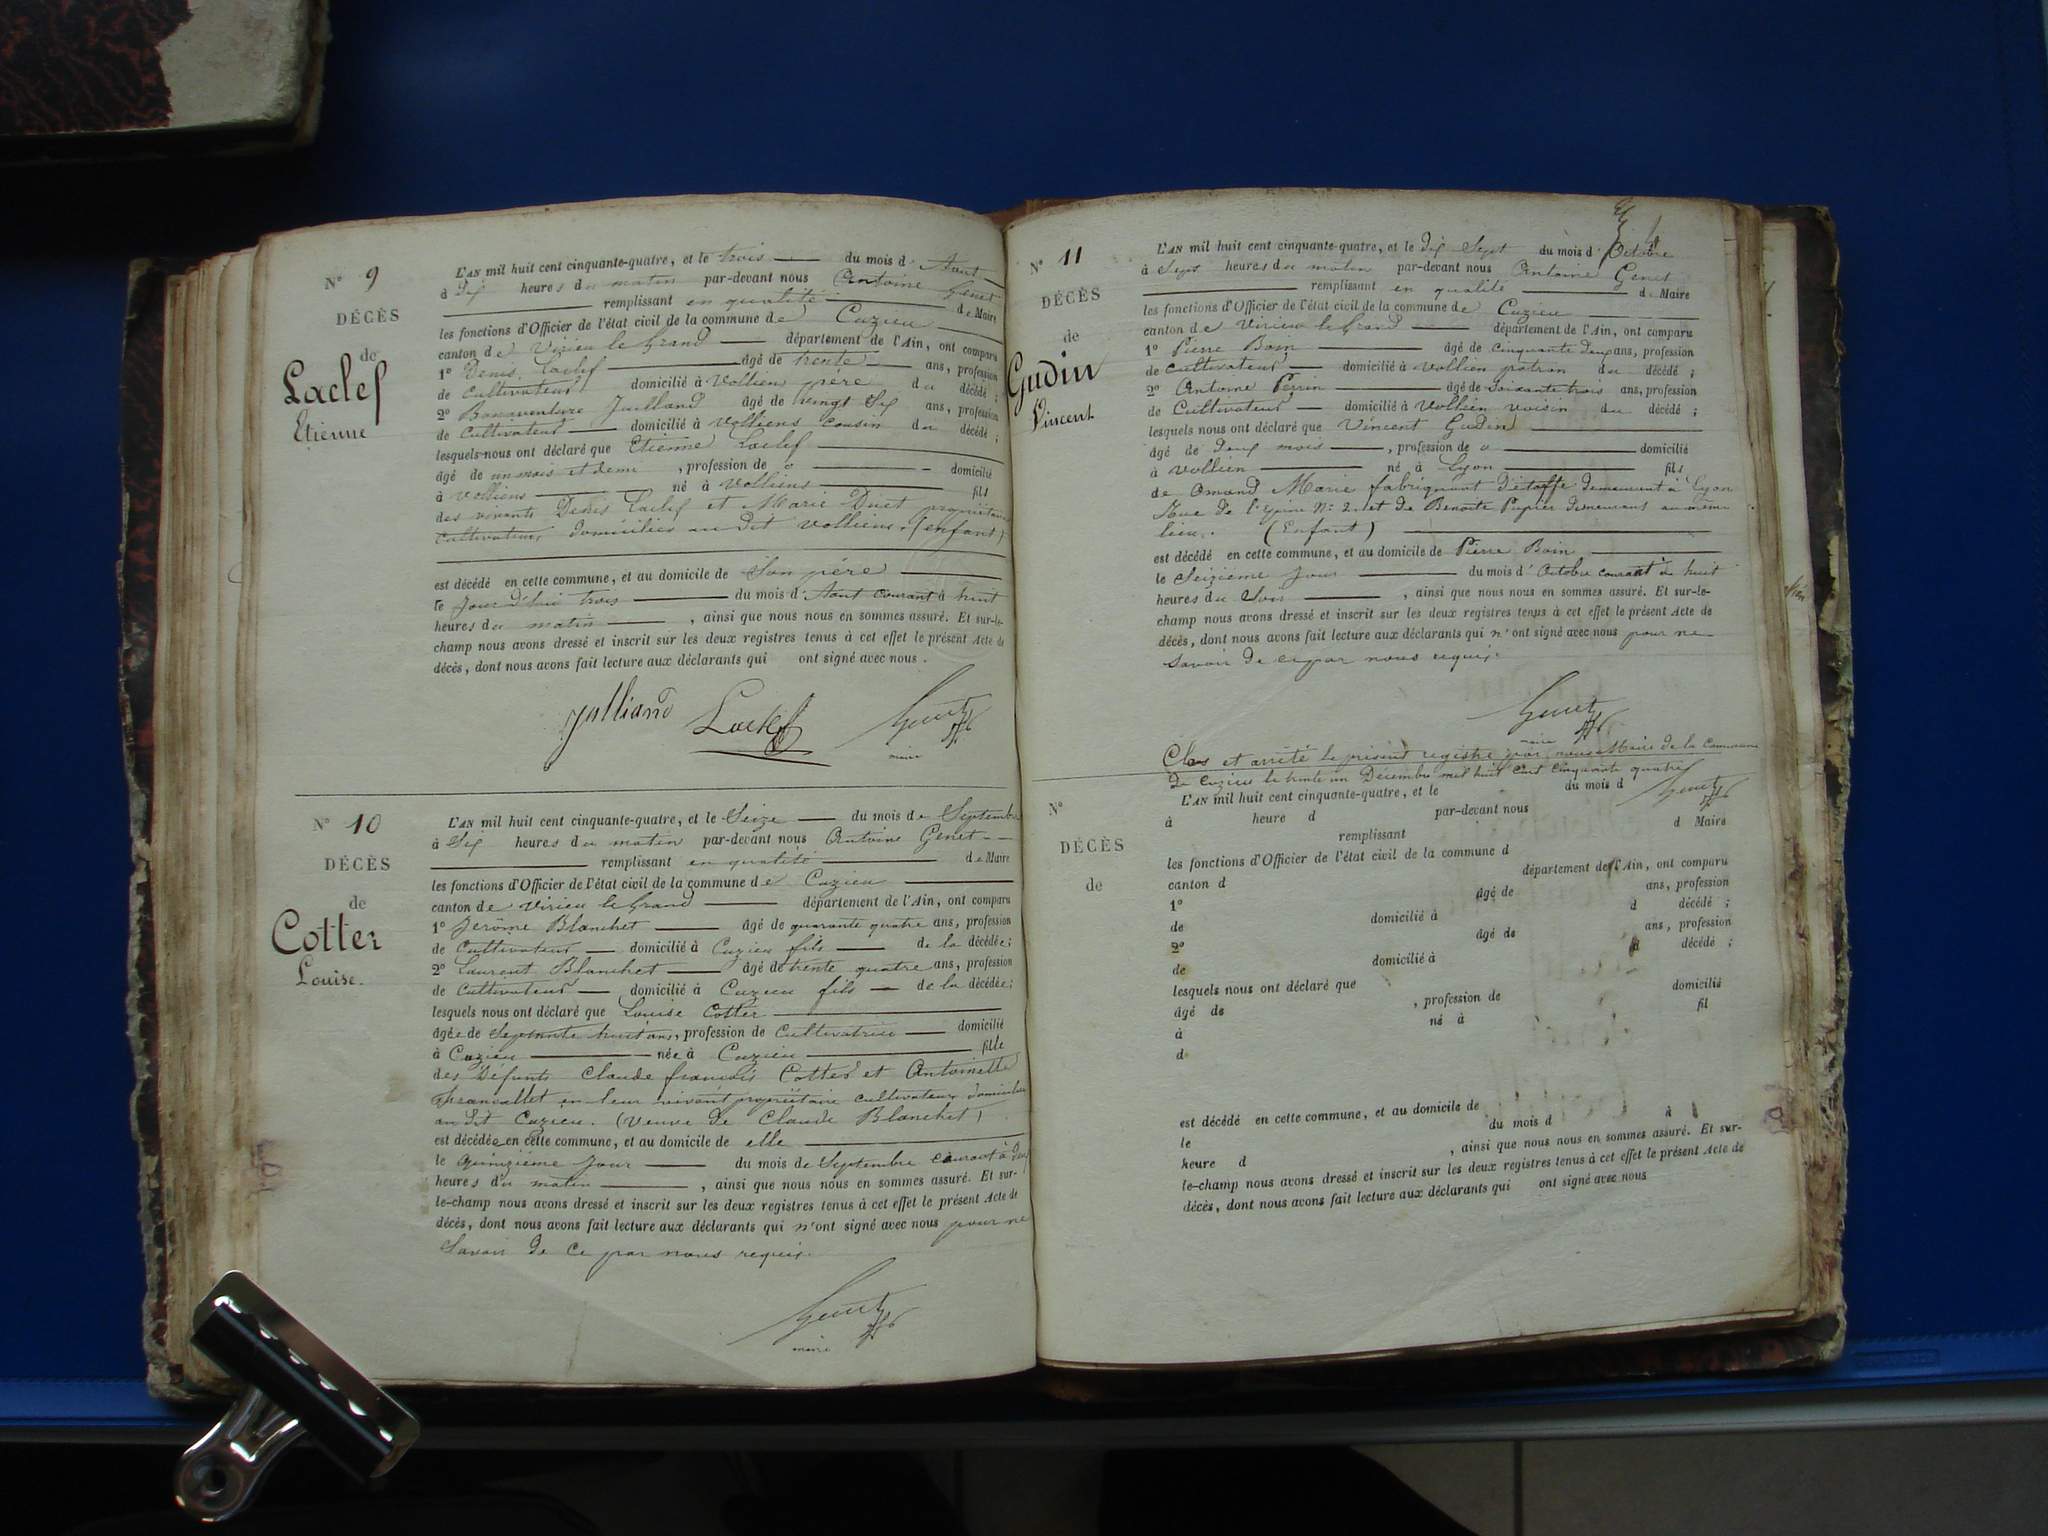 N° 9
DÉCÈS
de
Laclef
Etienne
L'AN mil huit cent cinquante-quatre, et le trois du mois d'Aout
à Dix heures du matin par-devant nous Antoine Genet
remplissant en qualité de Maire
les fonctions d'Officier de l'état civil de la commune de Cuzieu
canton de Virieu le Grand département de l'Ain, ont comparu
1° Denis Laclef âgé de trente ans, profession
de Cultivateur domicilié à Vollien père du décédé ;
2° Bonaventure Juilland âgé de vingt Six ans, profession
de Cultivateur domicilié à Volliens Cousin du décédé ;
lesquels nous ont déclaré que Etienne Laclef
âgé de un mois et demi , profession de o domicilié
à Volliens né à Volliens fils
des vivants Denis Laclef et Marie propriétaires
cultivateurs domiciliés au dit Volliens. (enfant)
est décédé en cette commune, et au domicile de Son père
le Jour d'hui trois du mois d'Aout courant à huit
heures du matin , ainsi que nous nous en sommes assuré. Et sur-le-
champ nous avons dressé et inscrit sur les deux registres tenus à cet effet le présent Acte de
décès, dont nous avons fait lecture aux déclarants qui ont signé avec nous .
Julliand Laclef Genet
maire
N° 10
DÉCÈS
de
Cotter
Louise.
L'AN mil huit cent cinquante-quatre, et le Seize du mois de Septembre
à Six heures du matin par-devant nous Antoine Genet
remplissant en qualité de Maire
les fonctions d'Officier de l'état civil de la commune de Cuzieu
canton de Virieu le Grand département de l'Ain, ont comparu
1° Jerôme Blanchet âgé de quarante quatre ans, profession
de Cultivateur domicilié à Cuzieu fils de la décédée ;
2° Laurent Blanchet âgé de trente quatre ans, profession
de Cultivateur domicilié à Cuzieu fils de la décédée ;
lesquels nous ont déclaré que Louise Cotter
âgée de Septante huit ans, profession de Cultivatrice domicilié
à Cuzieu née à Cuzieu fille
des Défunts Claude françois Cotter et Antoinette
en leur vivant propriétaire cultivateurs domiciliés
au dit Cuzieu. (veuve de Claude Blanchet)
est décédée en cette commune, et au domicile de elle
le quinzième Jour du mois de Septembre courant à
heures du matin , ainsi que nous nous en sommes assuré. Et sur-
le-champ nous avons dressé et inscrit sur les deux registres tenus à cet effet le présent Acte de
décès, dont nous avons fait lecture aux déclarants qui n'ont signé avec nous pour ne
Savoir de ce par nous requis.
Genet
maire
N° 11
DÉCÈS
de
Gudin
Vincent
L'AN mil huit cent cinquante-quatre, et le Dix Sept du mois d'Octobre
à Sept heures du matin par-devant nous Antoine Genet
remplissant en qualité de Maire
les fonctions d'Officier de l'état civil de la commune de Cuzieu
canton de Virieu le Grand département de l'Ain, ont comparu
1° Pierre Boin âgé de cinquante Deux ans, profession
de Cultivateur domicilié à Vollien patron du décédé ;
2° Antoine Perrin âgé de soixante trois ans, profession
de Cultivateur domicilié à Vollien voisin du décédé ;
lesquels nous ont déclaré que Vincent Gudin
âgé de Deux mois , profession de o domicilié
à Vollien né à Lyon fils
de Amand Marie fabriquant d'étoffe demeurant à Lyon
Rue de l'Epine N° 2. et de Benoite Papier Demeurans au même
lieu. (Enfant)
est décédé en cette commune, et au domicile de Pierre Boin
le Seizième Jour du mois d'Octobre courant à huit
heures du Soir , ainsi que nous nous en sommes assuré. Et sur-le-
champ nous avons dressé et inscrit sur les deux registres tenus à cet effet le présent Acte de
décès, dont nous avons fait lecture aux déclarants qui n'ont signé avec nous pour ne
Savoir de ce par nous requis.
Genet
maire
Clos et arrêté le présent registre par nous Maire de la Commune
de Cuzieu le trente un Décembre mil huit cent cinquante quatre
Genet
N°
DÉCÈS
de
L'AN mil huit cent cinquante-quatre, et le du mois d
à heure d par-devant nous
remplissant d Maire
les fonctions d'Officier de l'état civil de la commune d
canton d département de l'Ain, ont comparu
1° âgé de ans, profession
de domicilié à d décédé ;
2° âgé de ans, profession
de domicilié à d décédé ;
lesquels nous ont déclaré que
âgé de , profession de domicilié
à né à fil
d
est décédé en cette commune, et au domicile de
le du mois d à
heure d , ainsi que nous nous en sommes assuré. Et sur-
le-champ nous avons dressé et inscrit sur les deux registres tenus à cet effet le présent Acte de
décès, dont nous avons fait lecture aux déclarants qui ont signé avec nous